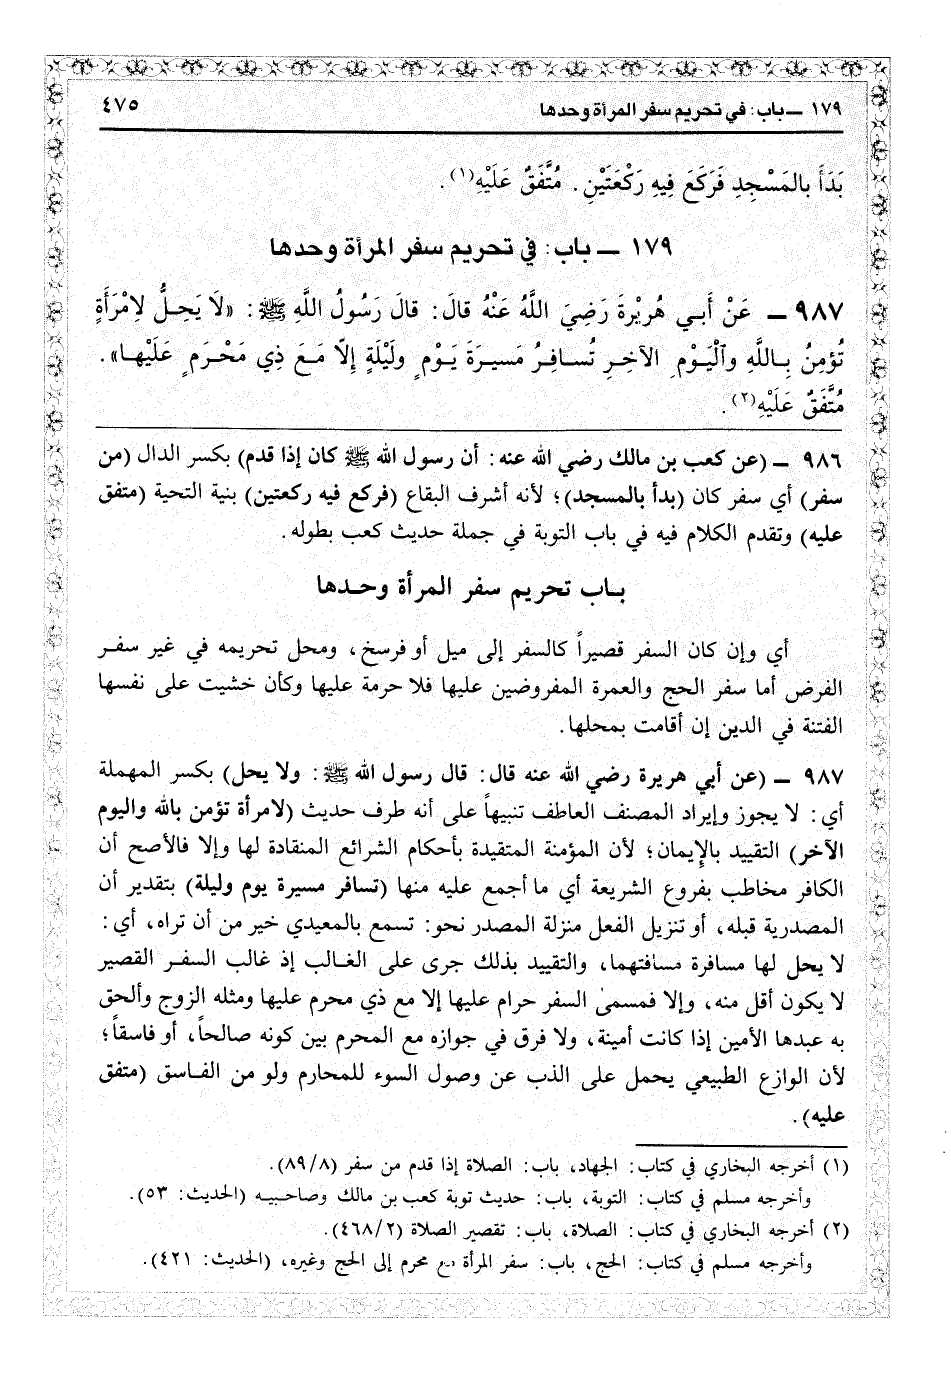 ١٧٩ ــ باب: في تحريم سفر المرأة وحدها ٤٧٥
بَدَأَ بالمَسْجِدِ فَرَكَعَ فِيهِ رَكْعَتَيْنِ. مُتَّفَقٌ عَلَيْهِ(١).
١٧٩ ــ باب: في تحريم سفر المرأة وحدها
٩٨٧ ــ عَنْ أَبـي هُرَيْرةَ رَضِيَ اللَّهُ عَنْهُ قالَ: قالَ رَسُولُ اللَّهِ ﷺ: «لَا يَحِـلُّ لِامْرَأَةٍ
تُؤمِنُ بِـاللَّهِ وٱلْيَـوْمِ الآخِـرِ تُسـافِـرُ مَسيـرَةَ يَـوْمٍ ولَيْلَةٍ إلّا مَـعَ ذِي مَحْـرَمٍ عَلَيْهـا».
مُتَّفَقٌ عَلَيْهِ(٢).
٩٨٦ ــ (عن كعب بن مالك رضي الله عنه: أن رسول الله ﷺ كان إذا قدم) بكسر الدال (من
سفر) أي سفر كان (بدأ بالمسجد)؛ لأنه أشرف البقاع (فركع فيه ركعتين) بنية التحية (متفق
عليه) وتقدم الكلام فيه في باب التوبة في جملة حديث كعب بطوله.
بـاب تحريم سفر المرأة وحـدها
أي وإن كان السفر قصيراً كالسفر إلى ميل أو فرسخ، ومحل تحريمه في غير سفـر
الفرض أما سفر الحج والعمرة المفروضين عليها فلا حرمة عليها وكأن خشيت على نفسها
الفتنة في الدين إن أقامت بمحلها.
٩٨٧ ــ (عن أبي هريرة رضي الله عنه قال: قال رسول الله ﷺ: ولا يحل) بكسر المهملة
أي: لا يجوز وإيراد المصنف العاطف تنبيهاً على أنه طرف حديث (لامرأة تؤمن بالله واليوم
الآخر) التقييد بالإيمان؛ لأن المؤمنة المتقيدة بأحكام الشرائع المنقادة لها وإلا فالأصح أن
الكافر مخاطب بفروع الشريعة أي ما أجمع عليه منها (تسافر مسيرة يوم وليلة) بتقدير أن
المصدرية قبله، أو تنزيل الفعل منزلة المصدر نحو: تسمع بالمعيدي خير من أن تراه، أي:
لا يحل لها مسافرة مسافتهما، والتقييد بذلك جرى على الغـالب إذ غالب السفـر القصير
لا يكون أقل منه، وإلا فمسمىٰ السفر حرام عليها إلا مع ذي محرم عليها ومثله الزوج وألحق
به عبدها الأمين إذا كانت أمينة، ولا فرق في جوازه مع المحرم بين كونه صالحاً، أو فاسقاً؛
لأن الوازع الطبيعي يحمل على الذب عن وصول السوء للمحارم ولو من الفـاسق (متفق
عليه).
(١) أخرجه البخاري في كتاب: الجهاد، باب: الصلاة إذا قدم من سفر (٨٩/٨).
وأخرجه مسلم في كتاب: التوبة، باب: حديث توبة كعب بن مالك وصاحبيه (الحديث: ٥٣).
(٢) أخرجه البخاري في كتاب: الصلاة، باب: تقصير الصلاة (٤٦٨/٢).
وأخرجه مسلم في كتاب: الحج، باب: سفر المرأة مع محرم إلى الحج وغيره، (الحديث: ٤٢١).